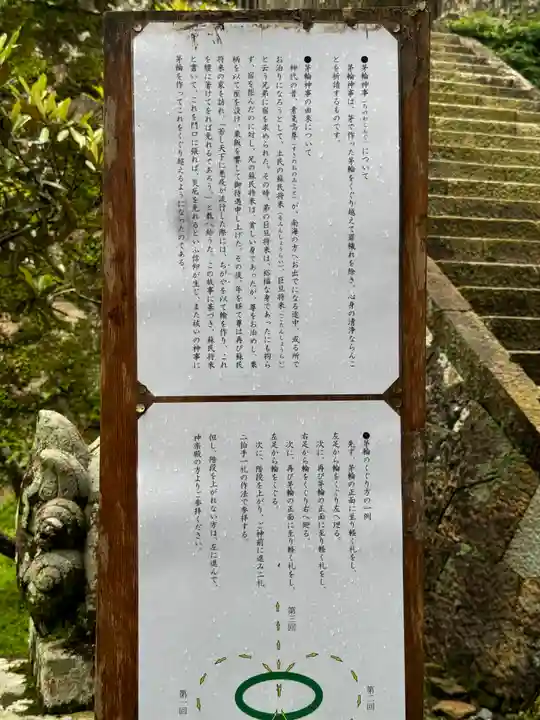 ●茅輪神事(ちのわしんじ)について
茅輪神事は、茅で作った茅輪をくぐり越えて罪穢れを除き、心身の清浄ならんこ
とを祈請するものです。
●茅輪神事の由来について
神代の昔、素戔嗚尊(すさのおのみこと)が、南海の方へお出でになる途中、或る所で
お泊りになろうとして、土民の蘇民将来(そみんしょうらい)、巨旦将来(こたんしょうらい)
と云う兄弟に宿を求められた。その時、弟の巨旦将来は、裕福な身であったにも拘ら
ず、宿を拒んだのに対し、兄の蘇民将来は、貧しい身であったが、尊をお泊めし、粟
柄を以て座を設け、粟飯を饗して御待遇申し上げた。その後、年を経て尊は再び蘇民
将来の家を訪れ、「若し天下に悪疫が流行した際には、ちがやを以て輪を作り、これ
を腰に著けておれば免れるであろう。」と教へ給うた。この故事に基づき、蘇民将来
と書いて、これを門口に張れば、災厄を免れるといふ信仰が生じ、また祓いの神事に
茅輪を作ってこれをくぐり越えるようになったのである。
●茅輪のくぐり方の一例
先ず、茅輪の正面に至り軽く礼をし、
左足から輪をくぐり左へ廻る。
次に、再び茅輪の正面に至り軽く礼をし、
右足から輪をくぐり右へ廻る。
次に、再び茅輪の正面に至り軽く礼をし、
左足から輪をくぐる。
次に、階段を上がり、ご神前に進み二礼
二拍手一礼の作法で参拝する。
但し、階段を上がれない方は、左に進んで、
神楽殿の方よりご参拝ください。
第二回
第三回
第一回